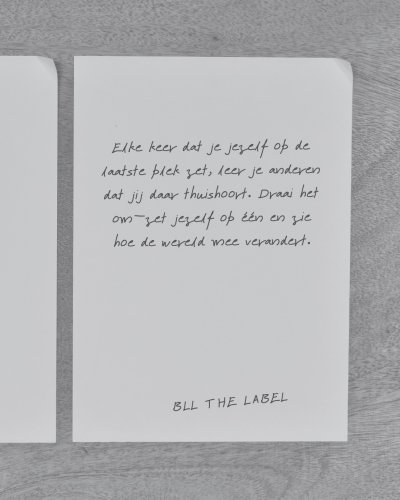 Elke keer dat je jezelf op de
laatste plek zet, leer je anderen
dat jij daar thuishoort. Draai het
om—zet jezelf op één en zie
hoe de wereld mee verandert.
BLL THE LABEL